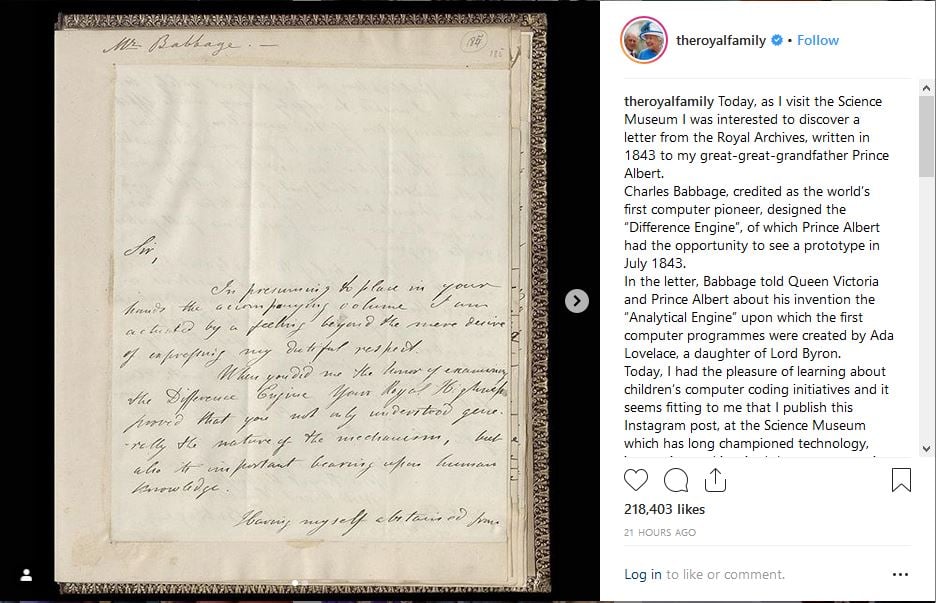 Mr Babbage. —
184
185
Sir,
In presuming to place in your
hands the accompanying volume I am
actuated by a feeling beyond the mere desire
of expressing my dutiful respect.
When you did me the honor of examining
the Difference Engine Your Royal Highness
proved that you not only understood gene-
-rally the nature of the mechanism, but
also its important bearing upon human
knowledge.
Having myself abstained from
theroyalfamily • Follow
theroyalfamily Today, as I visit the Science
Museum I was interested to discover a
letter from the Royal Archives, written in
1843 to my great-great-grandfather Prince
Albert.
Charles Babbage, credited as the world’s
first computer pioneer, designed the
“Difference Engine”, of which Prince Albert
had the opportunity to see a prototype in
July 1843.
In the letter, Babbage told Queen Victoria
and Prince Albert about his invention the
“Analytical Engine” upon which the first
computer programmes were created by Ada
Lovelace, a daughter of Lord Byron.
Today, I had the pleasure of learning about
children’s computer coding initiatives and it
seems fitting to me that I publish this
Instagram post, at the Science Museum
which has long championed technology,
218,403 likes
21 HOURS AGO
Log in to like or comment.